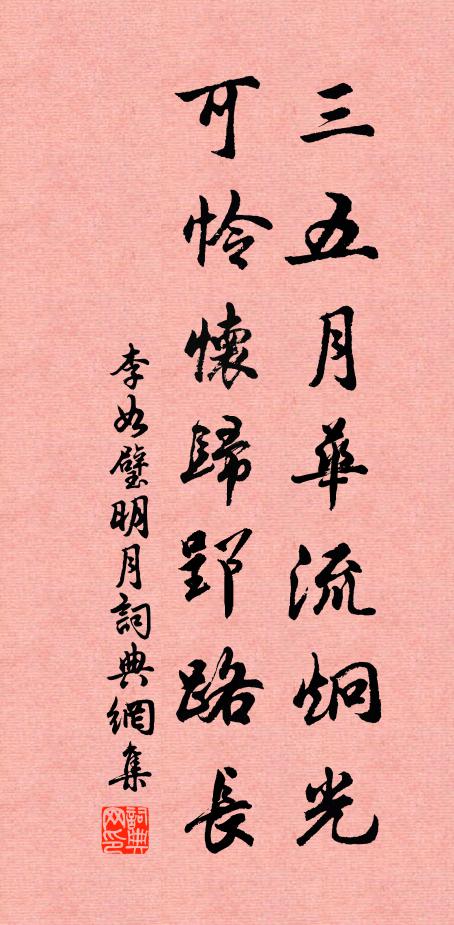 三五月華流炯光
可憐懷歸郢路長
李如璧明月詞典網集
詞典網印